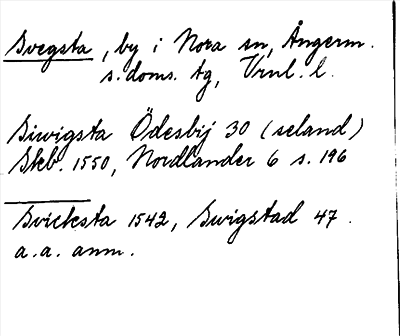 Svegsta, by i Nora sn, Ångerm.
s. doms. tg, Vrnl. l.
Siwigsta Ödesbij 30 (seland)
Skb. 1550, Nordlander 6 s. 196
Svicksta 1542, Swigstad 47.
a.a. anm.